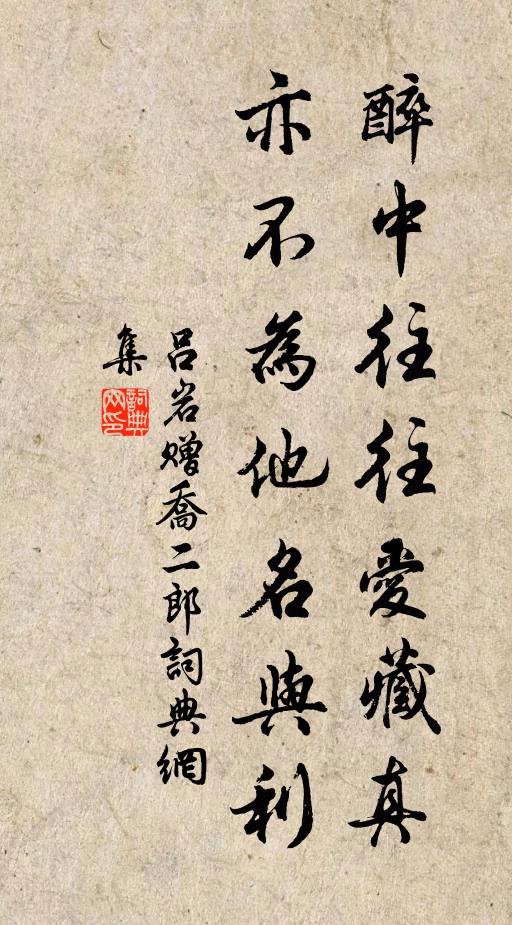 醉中往往愛藏真
亦不為他名與利
吕岩赠喬二郎詞典網
集
詞典網印